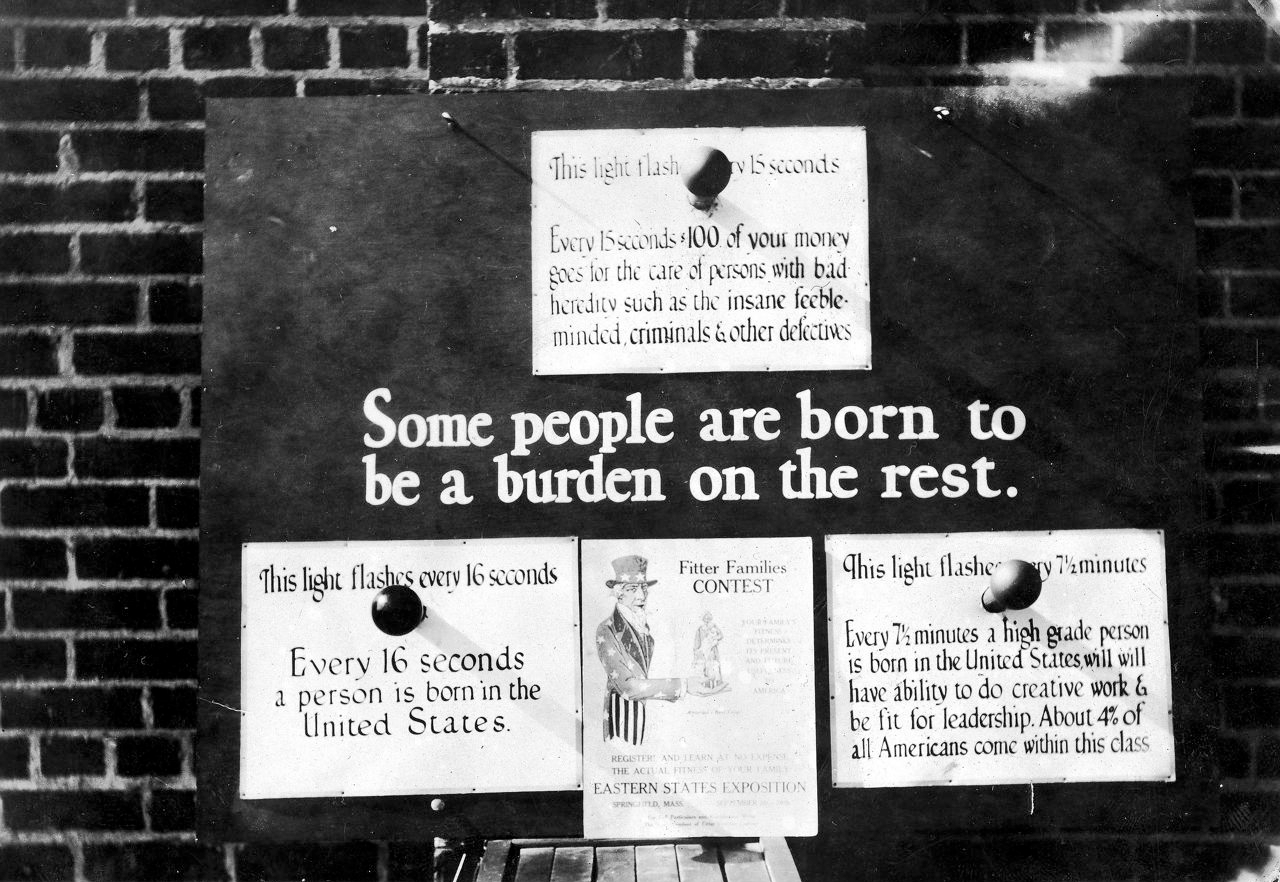 This light flash ry 15 seconds
Every 15 seconds $100. of your money
goes for the care of persons with bad
heredity such as the insane feeble-
minded, criminals & other defectives
Some people are born to
be a burden on the rest.
This light flashes every 16 seconds
Every 16 seconds
a person is born in the
United States.
Fitter Families
CONTEST
YOUR FAMILY'S
FITNESS
DETERMINES
ITS PRESENT
AND FUTURE
USEFULNESS
AMERICA
REGISTER! AND LEARN AT NO EXPENSE
THE ACTUAL FITNESS OF YOUR FAMILY
EASTERN STATES EXPOSITION
SPRINGFIELD, MASS. SEPTEMBER
This light flashes ry 7½ minutes
Every 7½ minutes a high grade person
is born in the United States, will will
have ability to do creative work &
be fit for leadership. About 4% of
all Americans come within this class